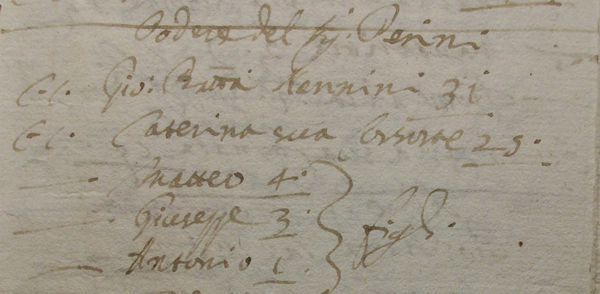 Podere del Sig. Perini
C. C. Gio: Batta Nannini 31
C. C. Caterina sua Consorte 25.
Matteo 4.
Giuseppe 3. figli.
Antonio 1.